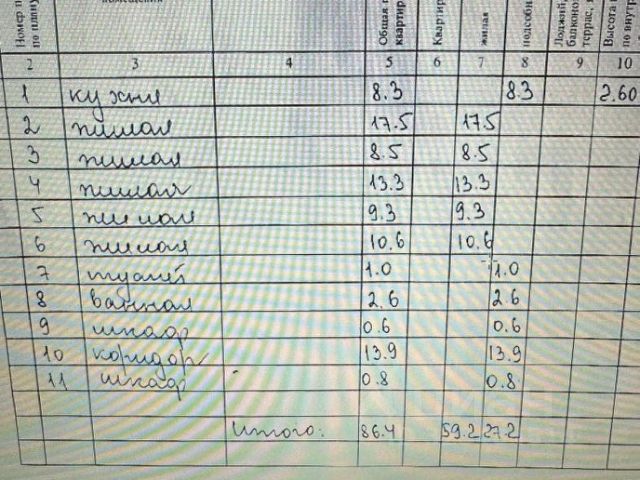 Номер п
по плану
помещения
Общая п
квартир
Квартир
жилая
подсобн
Лоджий,
балконов
террас,
Высота п
по внутр
2 3 4 5 6 7 8 9 10
1 кухня 8.3 8.3 2.60
2 жилая 17.5 17.5
3 жилая 8.5 8.5
4 жилая 13.3 13.3
5 жилая 9.3 9.3
6 жилая 10.6 10.6
7 туалет 1.0 1.0
8 ванная 2.6 2.6
9 шкаф 0.6 0.6
10 коридор 13.9 13.9
11 шкаф 0.8 0.8
Итого: 86.4 59.2 27.2